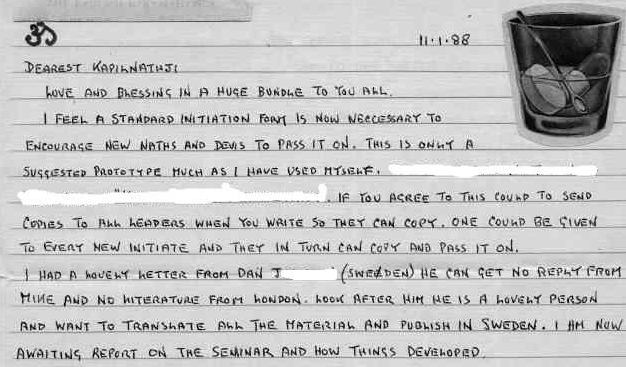 ॐ 11.1.88
DEAREST KAPILNATHJI
LOVE AND BLESSING IN A HUGE BUNDLE TO YOU ALL.
I FEEL A STANDARD INITIATION FORM IS NOW NECCESSARY TO
ENCOURAGE NEW NATHS AND DEVIS TO PASS IT ON. THIS IS ONLY A
SUGGESTED PROTOTYPE MUCH AS I HAVE USED MYSELF.
. IF YOU AGREE TO THIS COULD TO SEND
COPIES TO ALL LEADERS WHEN YOU WRITE SO THEY CAN COPY. ONE COULD BE GIVEN
TO EVERY NEW INITIATE AND THEY IN TURN CAN COPY AND PASS IT ON.
I HAD A LOVELY LETTER FROM DAN J (SWEDEN) HE CAN GET NO REPLY FROM
MIKE AND NO LITERATURE FROM LONDON. LOOK AFTER HIM HE IS A LOVELY PERSON
AND WANT TO TRANSLATE ALL THE MATERIAL AND PUBLISH IN SWEDEN. I AM NOW
AWAITING REPORT ON THE SEMINAR AND HOW THINGS DEVELOPED.